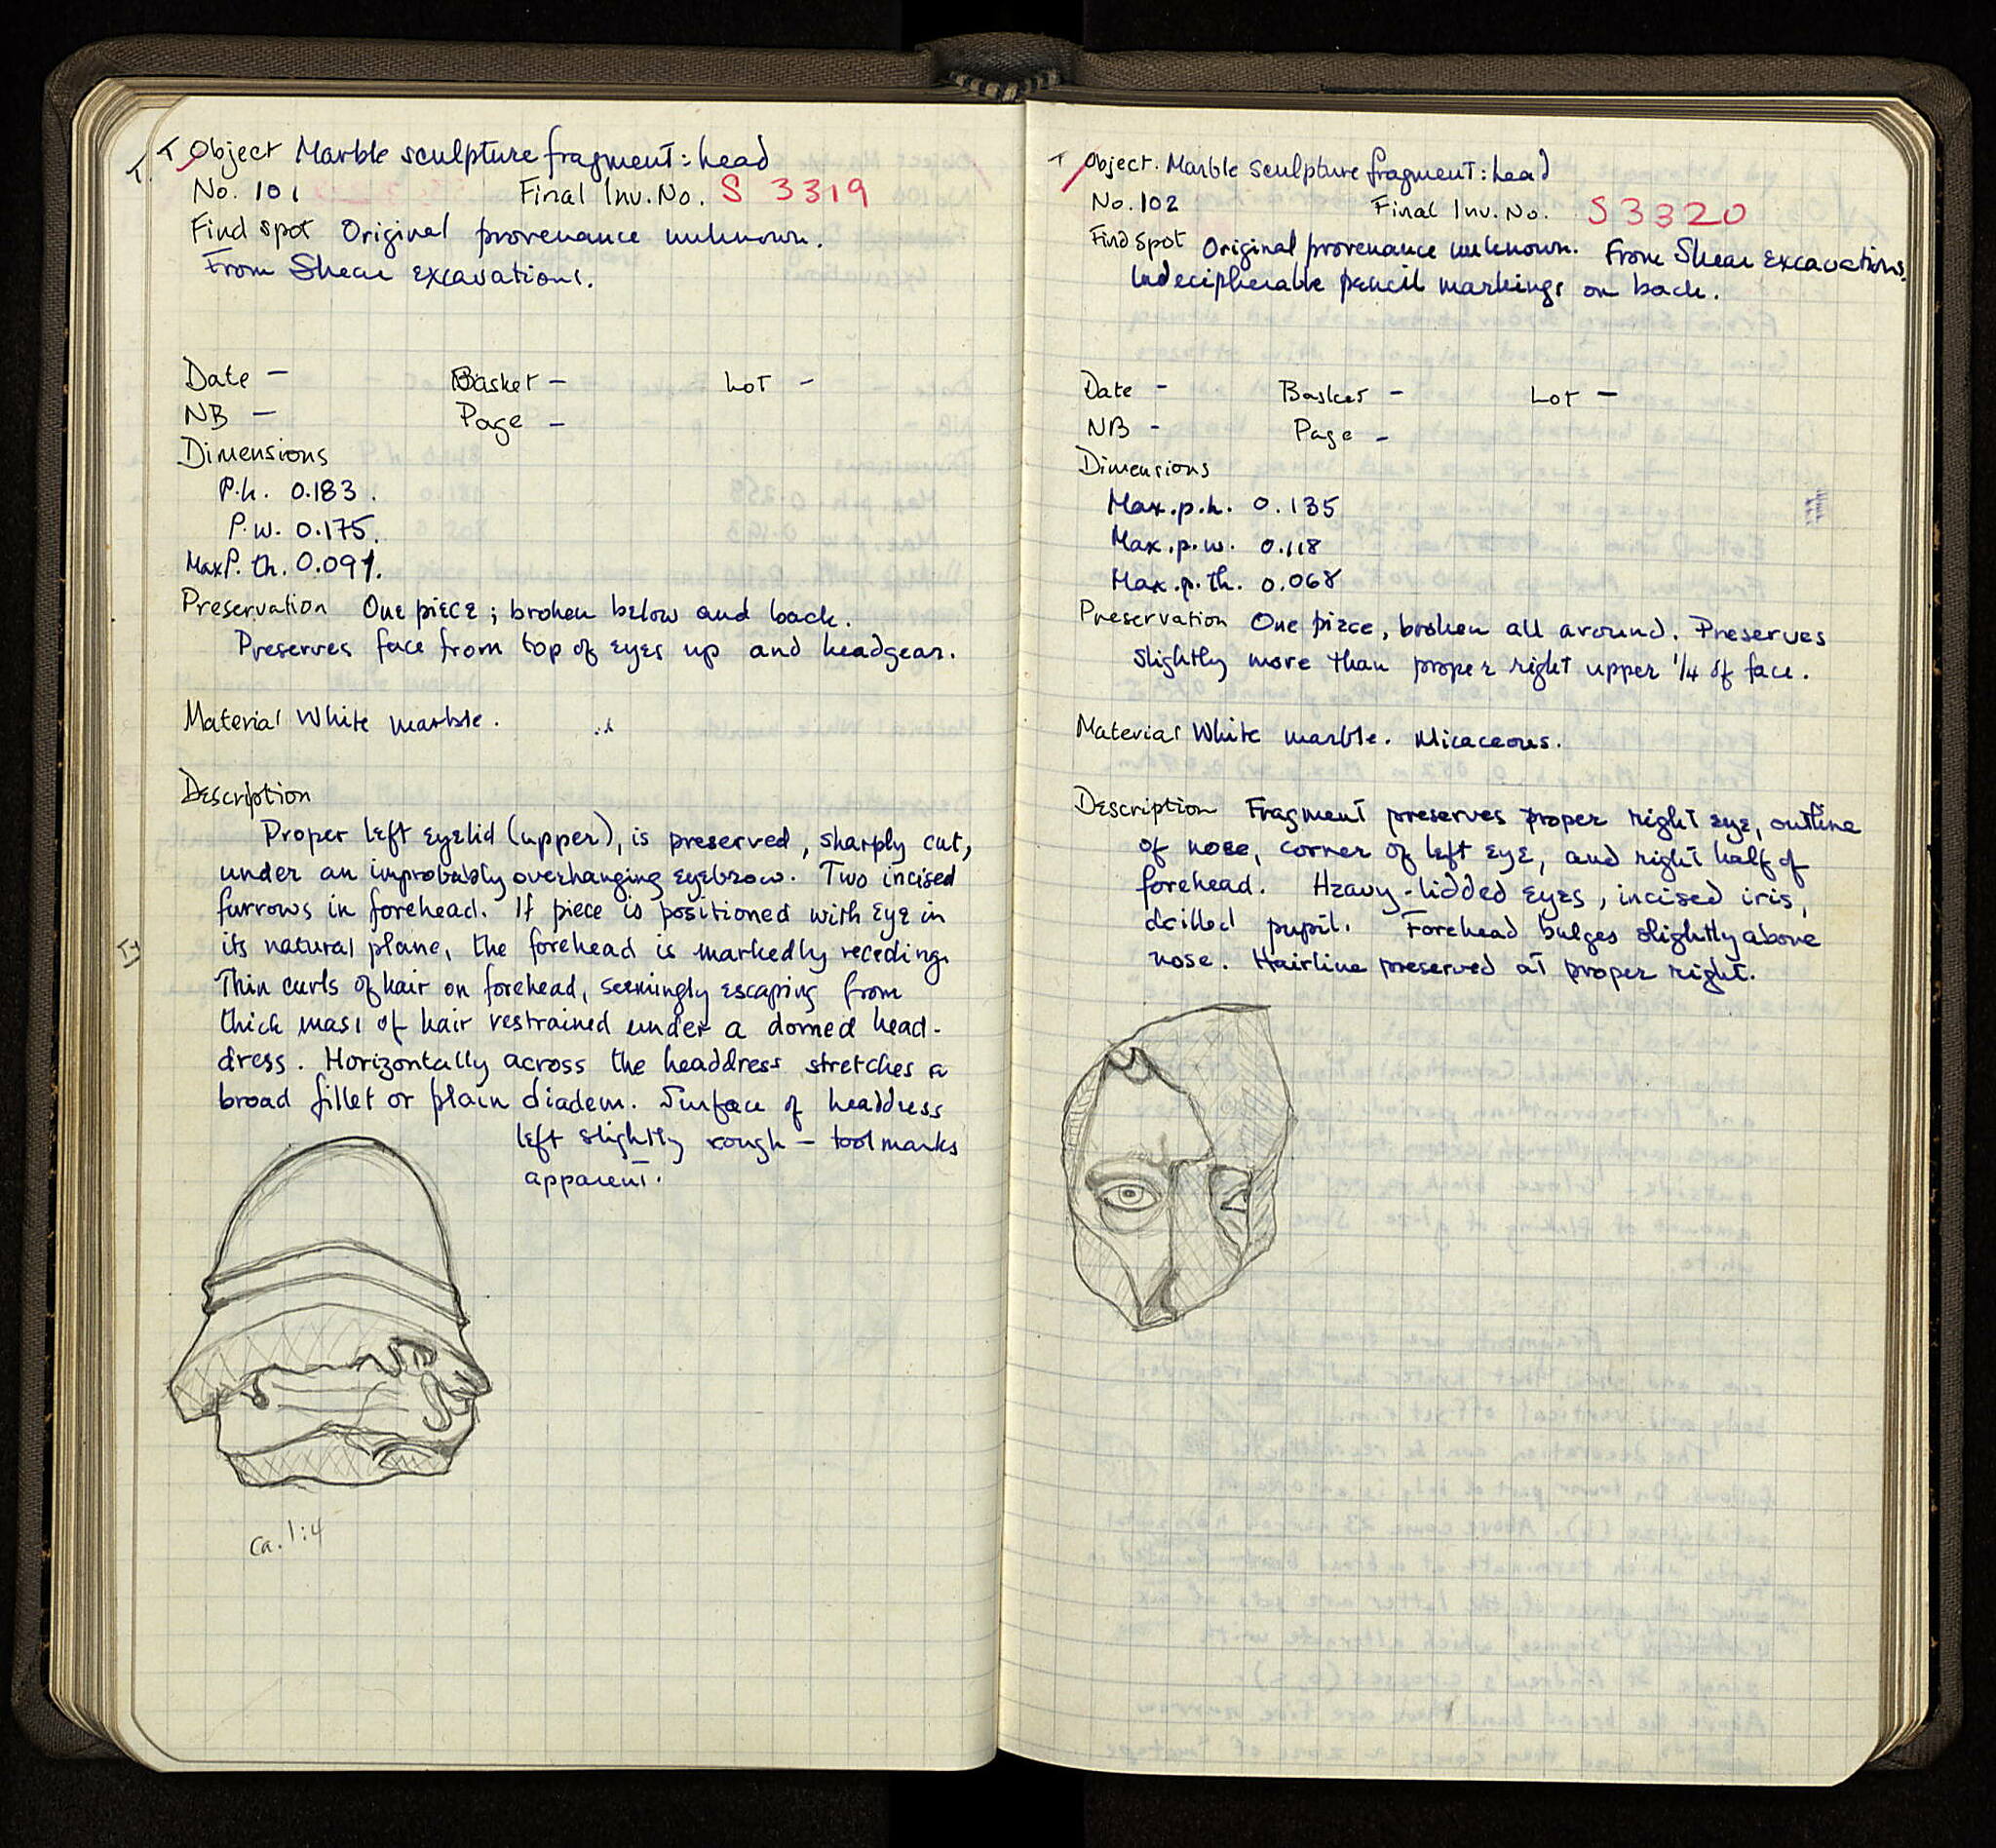 T. T Object Marble sculpture fragment: head
No. 101 Final Inv. No. S 3319
Find spot Original provenance unknown.
From Shear excavations.
Date – Basket – Lot –
NB – Page –
Dimensions
P.h. 0.183.
P.w. 0.175.
Max P. th. 0.091.
Preservation One piece; broken below and back.
Preserves face from top of eyes up and headgear.
Material White marble.
Description
Proper left eyelid (upper), is preserved, sharply cut,
under an improbably overhanging eyebrow. Two incised
furrows in forehead. If piece is positioned with eye in
its natural plane, the forehead is markedly receding.
Thin curls of hair on forehead, seemingly escaping from
thick mass of hair restrained under a domed head-
dress. Horizontally across the headdress stretches a
broad fillet or plain diadem. Surface of headdress
left slightly rough – tool marks
apparent.
ca. 1:4
T Object. Marble sculpture fragment: head
No. 102 Final Inv. No. S 3320
Find spot Original provenance unknown. From Shear excavations.
Indecipherable pencil markings on back.
Date – Basket – Lot –
NB – Page –
Dimensions
Max. p. h. 0.135
Max. p. w. 0.118
Max. p. th. 0.068
Preservation One piece, broken all around. Preserves
slightly more than proper right upper 1/4 of face.
Material White marble. Micaceous.
Description Fragment preserves proper right eye, outline
of nose, corner of left eye, and right half of
forehead. Heavy-lidded eyes, incised iris,
drilled pupil. Forehead bulges slightly above
nose. Hairline preserved at proper right.